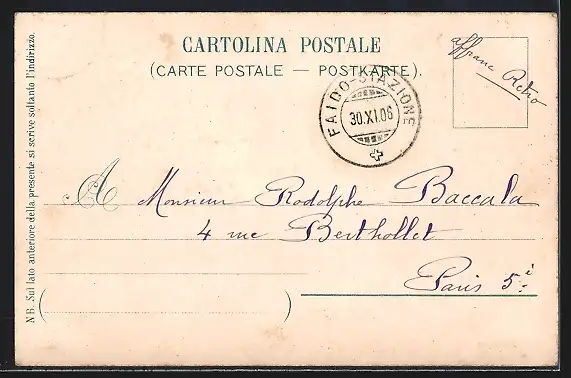 CARTOLINA POSTALE
(CARTE POSTALE — POSTKARTE).
affranc Retro
FAIDO-STAZIONE
30.XI.06
A Monsieur Rodolphe Baccala
4 rue Berthollet
Paris 5.è
NB. Sul lato anteriore della presente si scrive soltanto l'indirizzo.